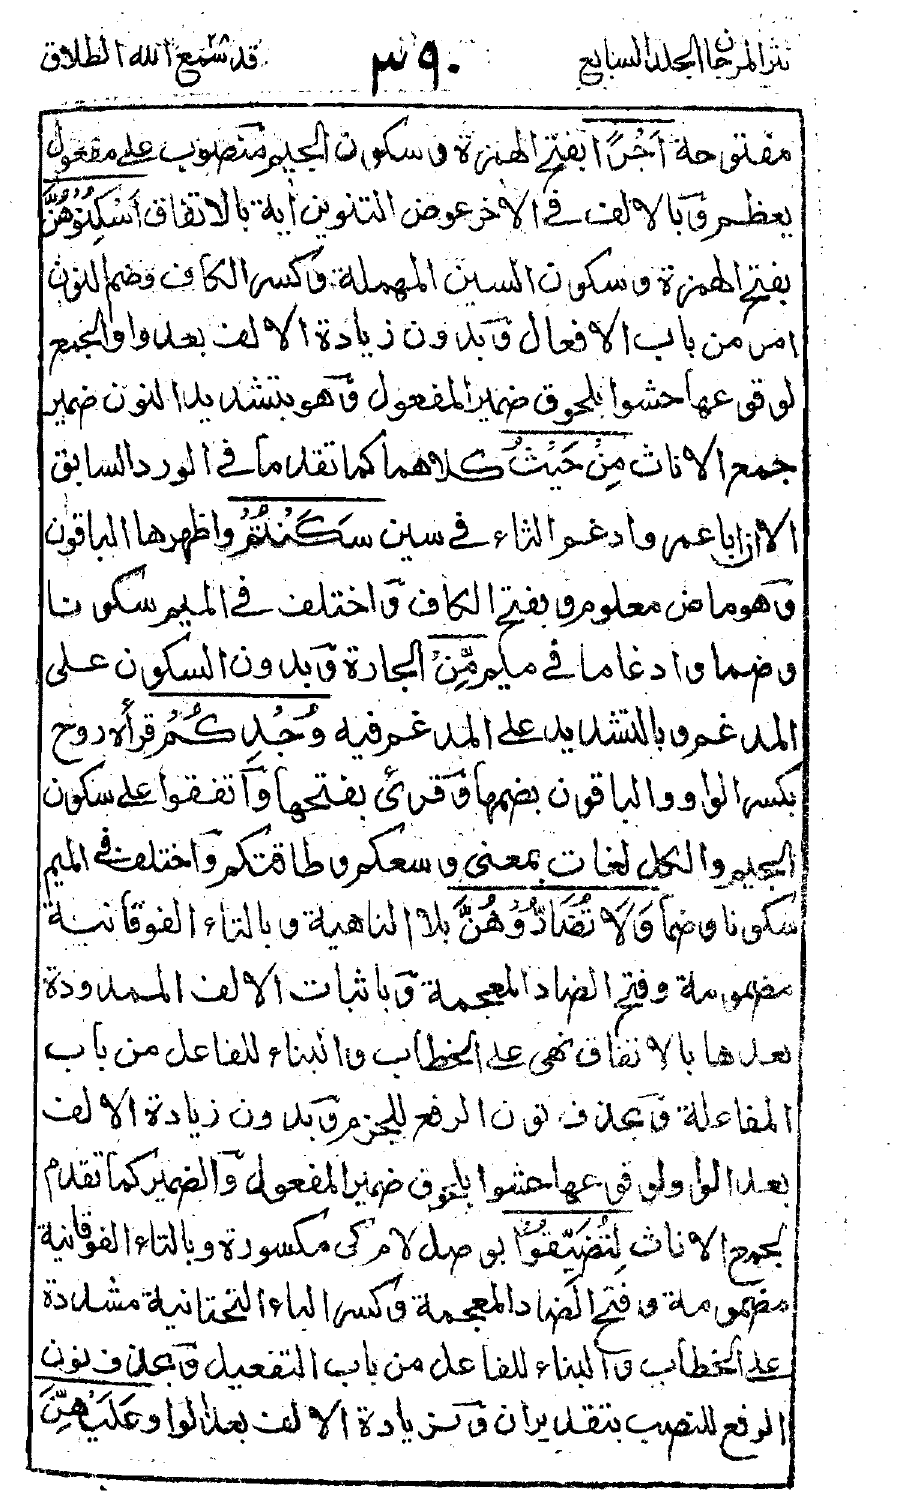 نثر المرجان الجلد السابع
٣٩٠
قد سمع الله ٢٨ الطلاق
مفتوحة اَجْرًا بفتح الهمزة و سكون الجيم منصوب على مفعول
يعظم و بالالف فى الاخر عوض التنوين اية بالاتفاق اَسْكِنُوْهُنَّ
بفتح الهمزة و سكون السين المهملة و كسر الكاف و ضم النون
امر من باب الافعال و بدون زيادة الالف بعد واو الجمع
لوقوعها حشوا بلحوق ضمير المفعول و هو بتشديد النون ضمير
جمع الاناث مِنْ حَيْثُ كلاهما كما تقدما فى الورد السابق
الا ان ابا عمرو ادغم الثاء فى سين سَكَنْتُمْ و اظهرها الباقون
و هو ماض معلوم و بفتح الكاف و اختلف فى الميم سكونا
و ضما و ادغاما فى ميم مِّنْ الجارة و بدون السكون على
المدغم و بالتشديد على المدغم فيه وُجْدِكُمْ قرأه روح
بكسر الواو و الباقون بضمها و قرئ بفتحها و اتفقوا على سكون
الجيم و الكل لغات بمعنى و سعكم و طاقتكم و اختلف فى الميم
سكونا و ضما وَلَا تُضَآرُّوْهُنَّ بلا الناهية و بالتاء الفوقانية
مضمومة و فتح الضاد المعجمة و باثبات الالف الممدودة
بعدها بالاتفاق نهى على الخطاب و البناء للفاعل من باب
المفاعلة و بحذف نون الرفع للجزم و بدون زيادة الالف
بعد الواو لوقوعها حشوا بلحوق ضمير المفعول و الضمير كما تقدم
لجمع الاناث لِتُضَيِّقُوْا بوصل لام كى مكسورة و بالتاء الفوقانية
مضمومة و فتح الضاد المعجمة و كسر الياء التحتانية مشددة
على الخطاب و البناء للفاعل من باب التفعيل و بحذف نون
الرفع للنصب بتقدير ان و بزيادة الالف بعد الواو عَلَيْهِنَّ